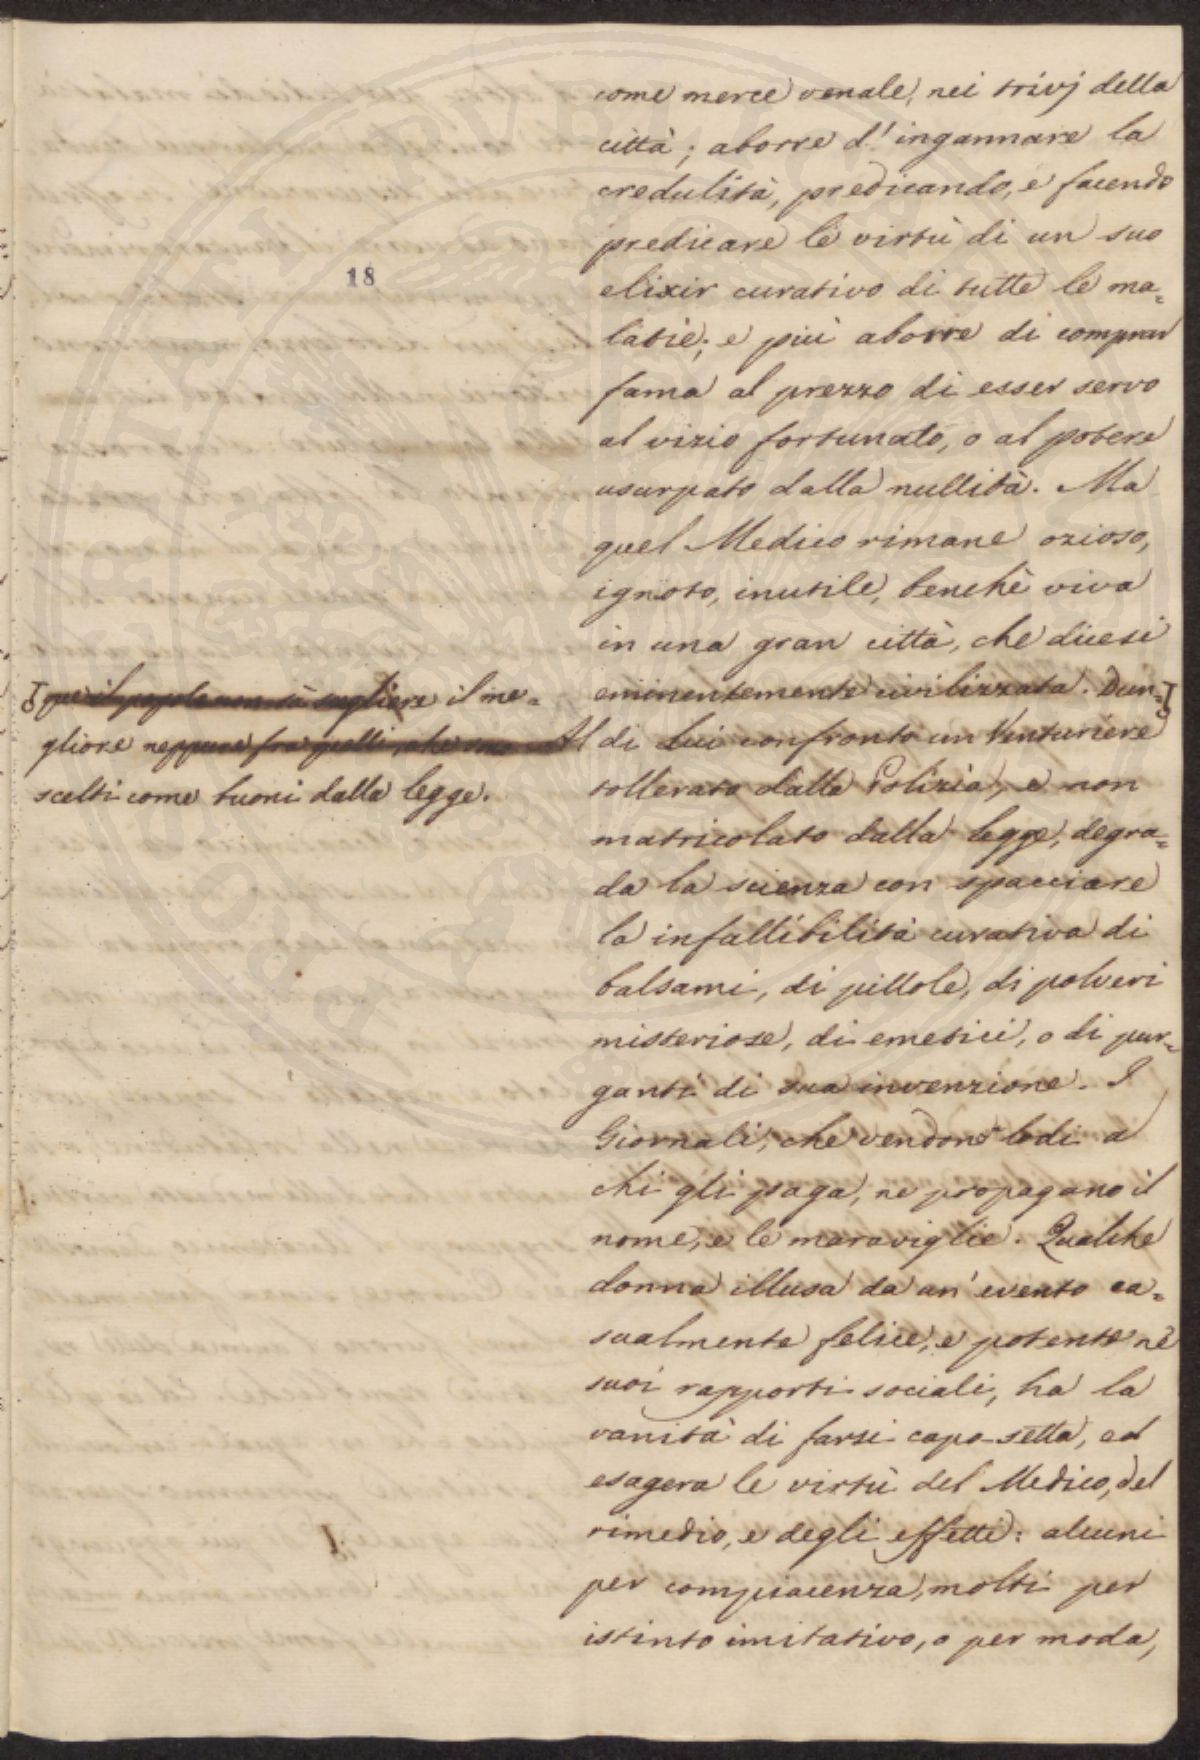 come merce venale, nei trivj della
città; aborre d'ingannare la
credulità, predicando, e facendo
predicare le virtù di un suo
18
elixir curativo di tutte le ma=
latie; e più aborre di comprar
fama al prezzo di esser servo
al vizio fortunato, o al potere
usurpato dalla nullità. Ma
quel Medico rimane ozioso,
ignoto, inutile, benchè viva
in una gran città, che dicesi
eminentemente civilizzata. Dun=
que il popolo non sà scegliere il me=
gliore neppure fra quelli, che sono
scelti come buoni dalla legge.
Al di Lui confronto un Venturiere
tollerato dalla Polizia, e non
matricolato dalla legge, degra=
da la scienza con spacciare
la infallibilità curativa di
balsami, di pillole, di polveri
misteriose, di emetici, o di pur=
ganti di sua invenzione. I
Giornali, che vendono lodi a
chi gli paga, ne propagano il
nome, e le maraviglie. Qualche
donna illusa da un' evento ca=
sualmente felice, e potente nè
suoi rapporti sociali, ha la
vanità di farsi capo-setta, ed
esagera le virtù del Medico, del
rimedio, e degli effetti: alcuni
per compiacenza, molti per
istinto imitativo, o per moda,